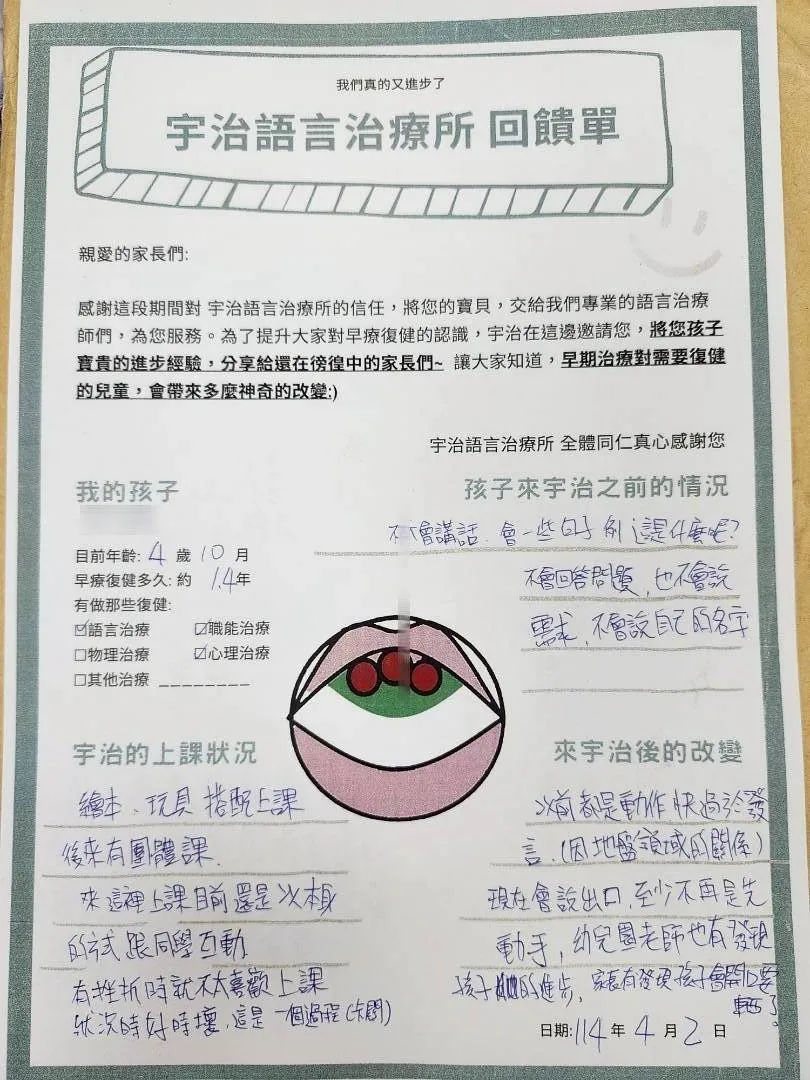 我們真的又進步了
宇治語言治療所 回饋單
親愛的家長們:
感謝這段期間對 宇治語言治療所的信任，將您的寶貝，交給我們專業的語言治療
師們，為您服務。為了提升大家對早療復健的認識，宇治在這邊邀請您，將您孩子
寶貴的進步經驗，分享給還在徬徨中的家長們~ 讓大家知道，早期治療對需要復健
的兒童，會帶來多麼神奇的改變:)
宇治語言治療所 全體同仁真心感謝您
我的孩子
目前年齡: 4 歲 10 月
早療復健多久: 約 1.4年
有做那些復健:
☑語言治療 ☑職能治療
☐物理治療 ☑心理治療
☐其他治療 ________
孩子來宇治之前的情況
不會講話、會一些句子 例 這是什麼呢?
不會回答問題，也不會說
需求，不會說自己的名字
宇治的上課狀況
繪本、玩具 搭配上課
後來有團體課.
來這裡上課目前還是以本身
的方式 跟同學互動
有挫折時就不太喜歡上課
狀況時好時壞，這是一個過程(卡關)
來宇治後的改變
以前都是動作快過於發
言.(因地盤領域的關係)
現在會說出口，至少不再是先
動手，幼兒園老師也有發現
孩子的進步，家長有發現孩子會開口要
東西了。
日期: 114 年 4 月 2 日